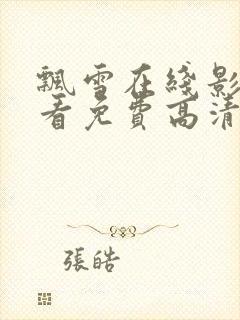 飄雪在綫影
看免費高清
張皓